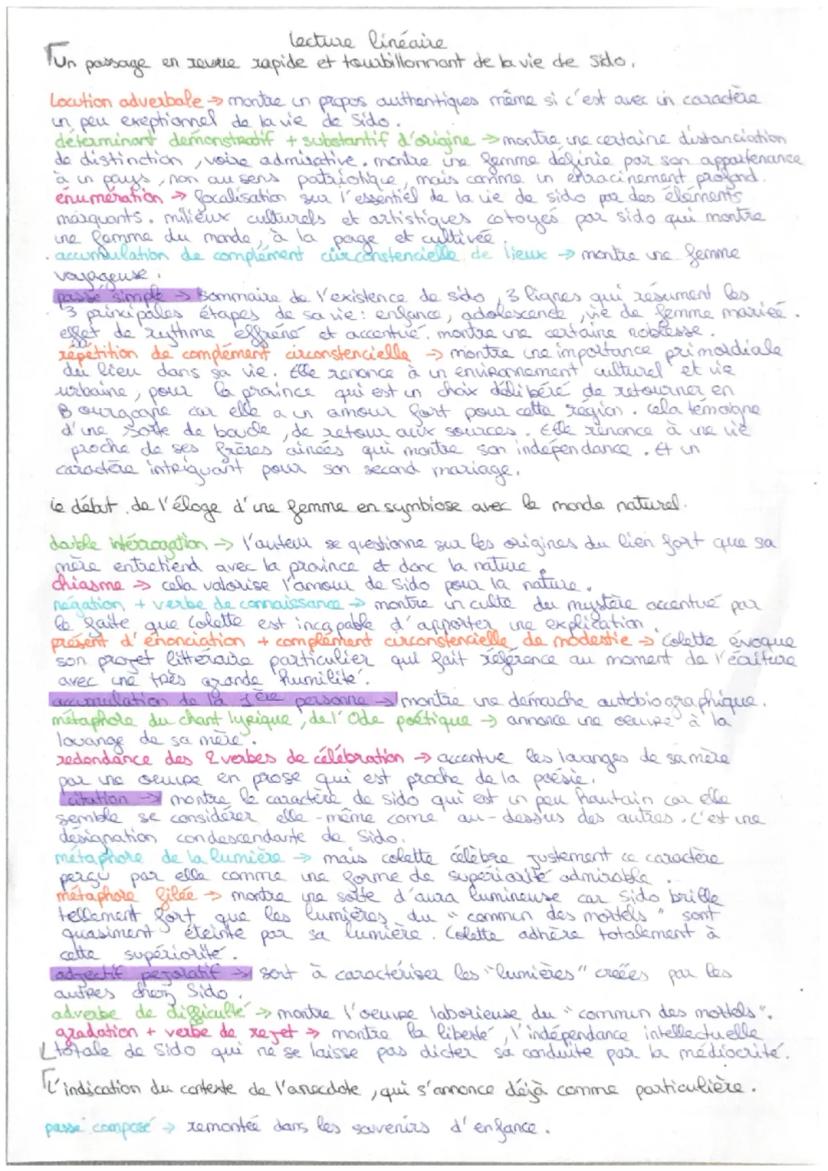 lecture linéaire
Un passage en revue rapide et tourbillonnant de la vie de Sido.
Locution adverbale → montre un propos authentiques même si c'est avec un caractère
un peu exeptionnel de la vie de Sido.
déterminant démonstratif + substantif d'origine → montre une certaine distanciation
de distinction, voire admirative. montre une femme définie par son appartenance
à un pays, non au sens patriotique, mais comme un enracinement profond.
énumération → focalisation sur l'essentiel de la vie de sido par des éléments
marquants. milieux culturels et artistiques cotoyés par sido qui montre
une femme du monde, à la page et cultivée.
accumulation de complément circonstencielle de lieux → montre une femme
voyageuse.
passé simple → sommaire de l'existence de sido, 3 lignes qui résument les
3 principales étapes de sa vie : enfance, adolescence, vie de femme mariée.
effet de rythme effréné et accentué. montre une certaine noblesse.
répétition de complément circonstencielle → montre une importance primordiale
du lieu dans sa vie. Elle renonce à un environnement culturel et vie
urbaine, pour la province qui est un choix délibéré de retourner en
Bourgogne car elle a un amour fort pour cette région. cela témoigne
d'une sorte de boucle, de retour aux sources. Elle renonce à une vie
proche de ses frères ainées qui montre son indépendance. Et un
caractère intriguant pour son second mariage.
le début de l'éloge d'une femme en symbiose avec le monde naturel.
double intérrogation → l'auteur se questionne sur les origines du lien fort que sa
mère entretiend avec la province et donc la nature.
chiasme → cela valorise l'amour de Sido pour la nature.
négation + verbe de connaissance → montre un culte du mystère accentué par
le faite que Colette est incapable d'apporter une explication.
présent d'énonciation + complément circonstencielle de modestie → Colette évoque
son projet littéraire particulier qui fait référence au moment de l'écriture
avec une très grande humilité.
accumulation de la 1ère personne → montre une démarche autobiographique.
métaphore du chant lyrique, de l'Ode poétique → annonce une oeuvre à la
louange de sa mère.
redondance des 2 verbes de célébration → accentue les louanges de sa mère
par une oeuvre en prose qui est proche de la poésie.
citation → montre le caractère de sido qui est un peu hautain car elle
semble se considérer elle-même come au-dessus des autres. C'est une
désignation condescendante de Sido.
métaphore de la lumière → mais colette célèbre justement ce caractère
perçu par elle comme une forme de supériorité admirable.
métaphore filée → montre une sorte d'aura lumineuse car Sido brille
tellement fort que les lumières du "commun des mortels" sont
quasiment éteinte par sa lumière. Colette adhère totalement à
cette supériorité.
adjectif pejoratif → sert à caractériser les "lumières" créées par les
autres chez Sido.
adverbe de difficulté → montre l'oeuvre laborieuse du "commun des mortels".
gradation + verbe de rejet → montre la liberté, l'indépendance intellectuelle
totale de Sido qui ne se laisse pas dicter sa conduite par la médiocrité.
L'indication du contexte de l'anecdote, qui s'annonce déjà comme particulière.
passé composé → remontée dans les souvenirs d'enfance.